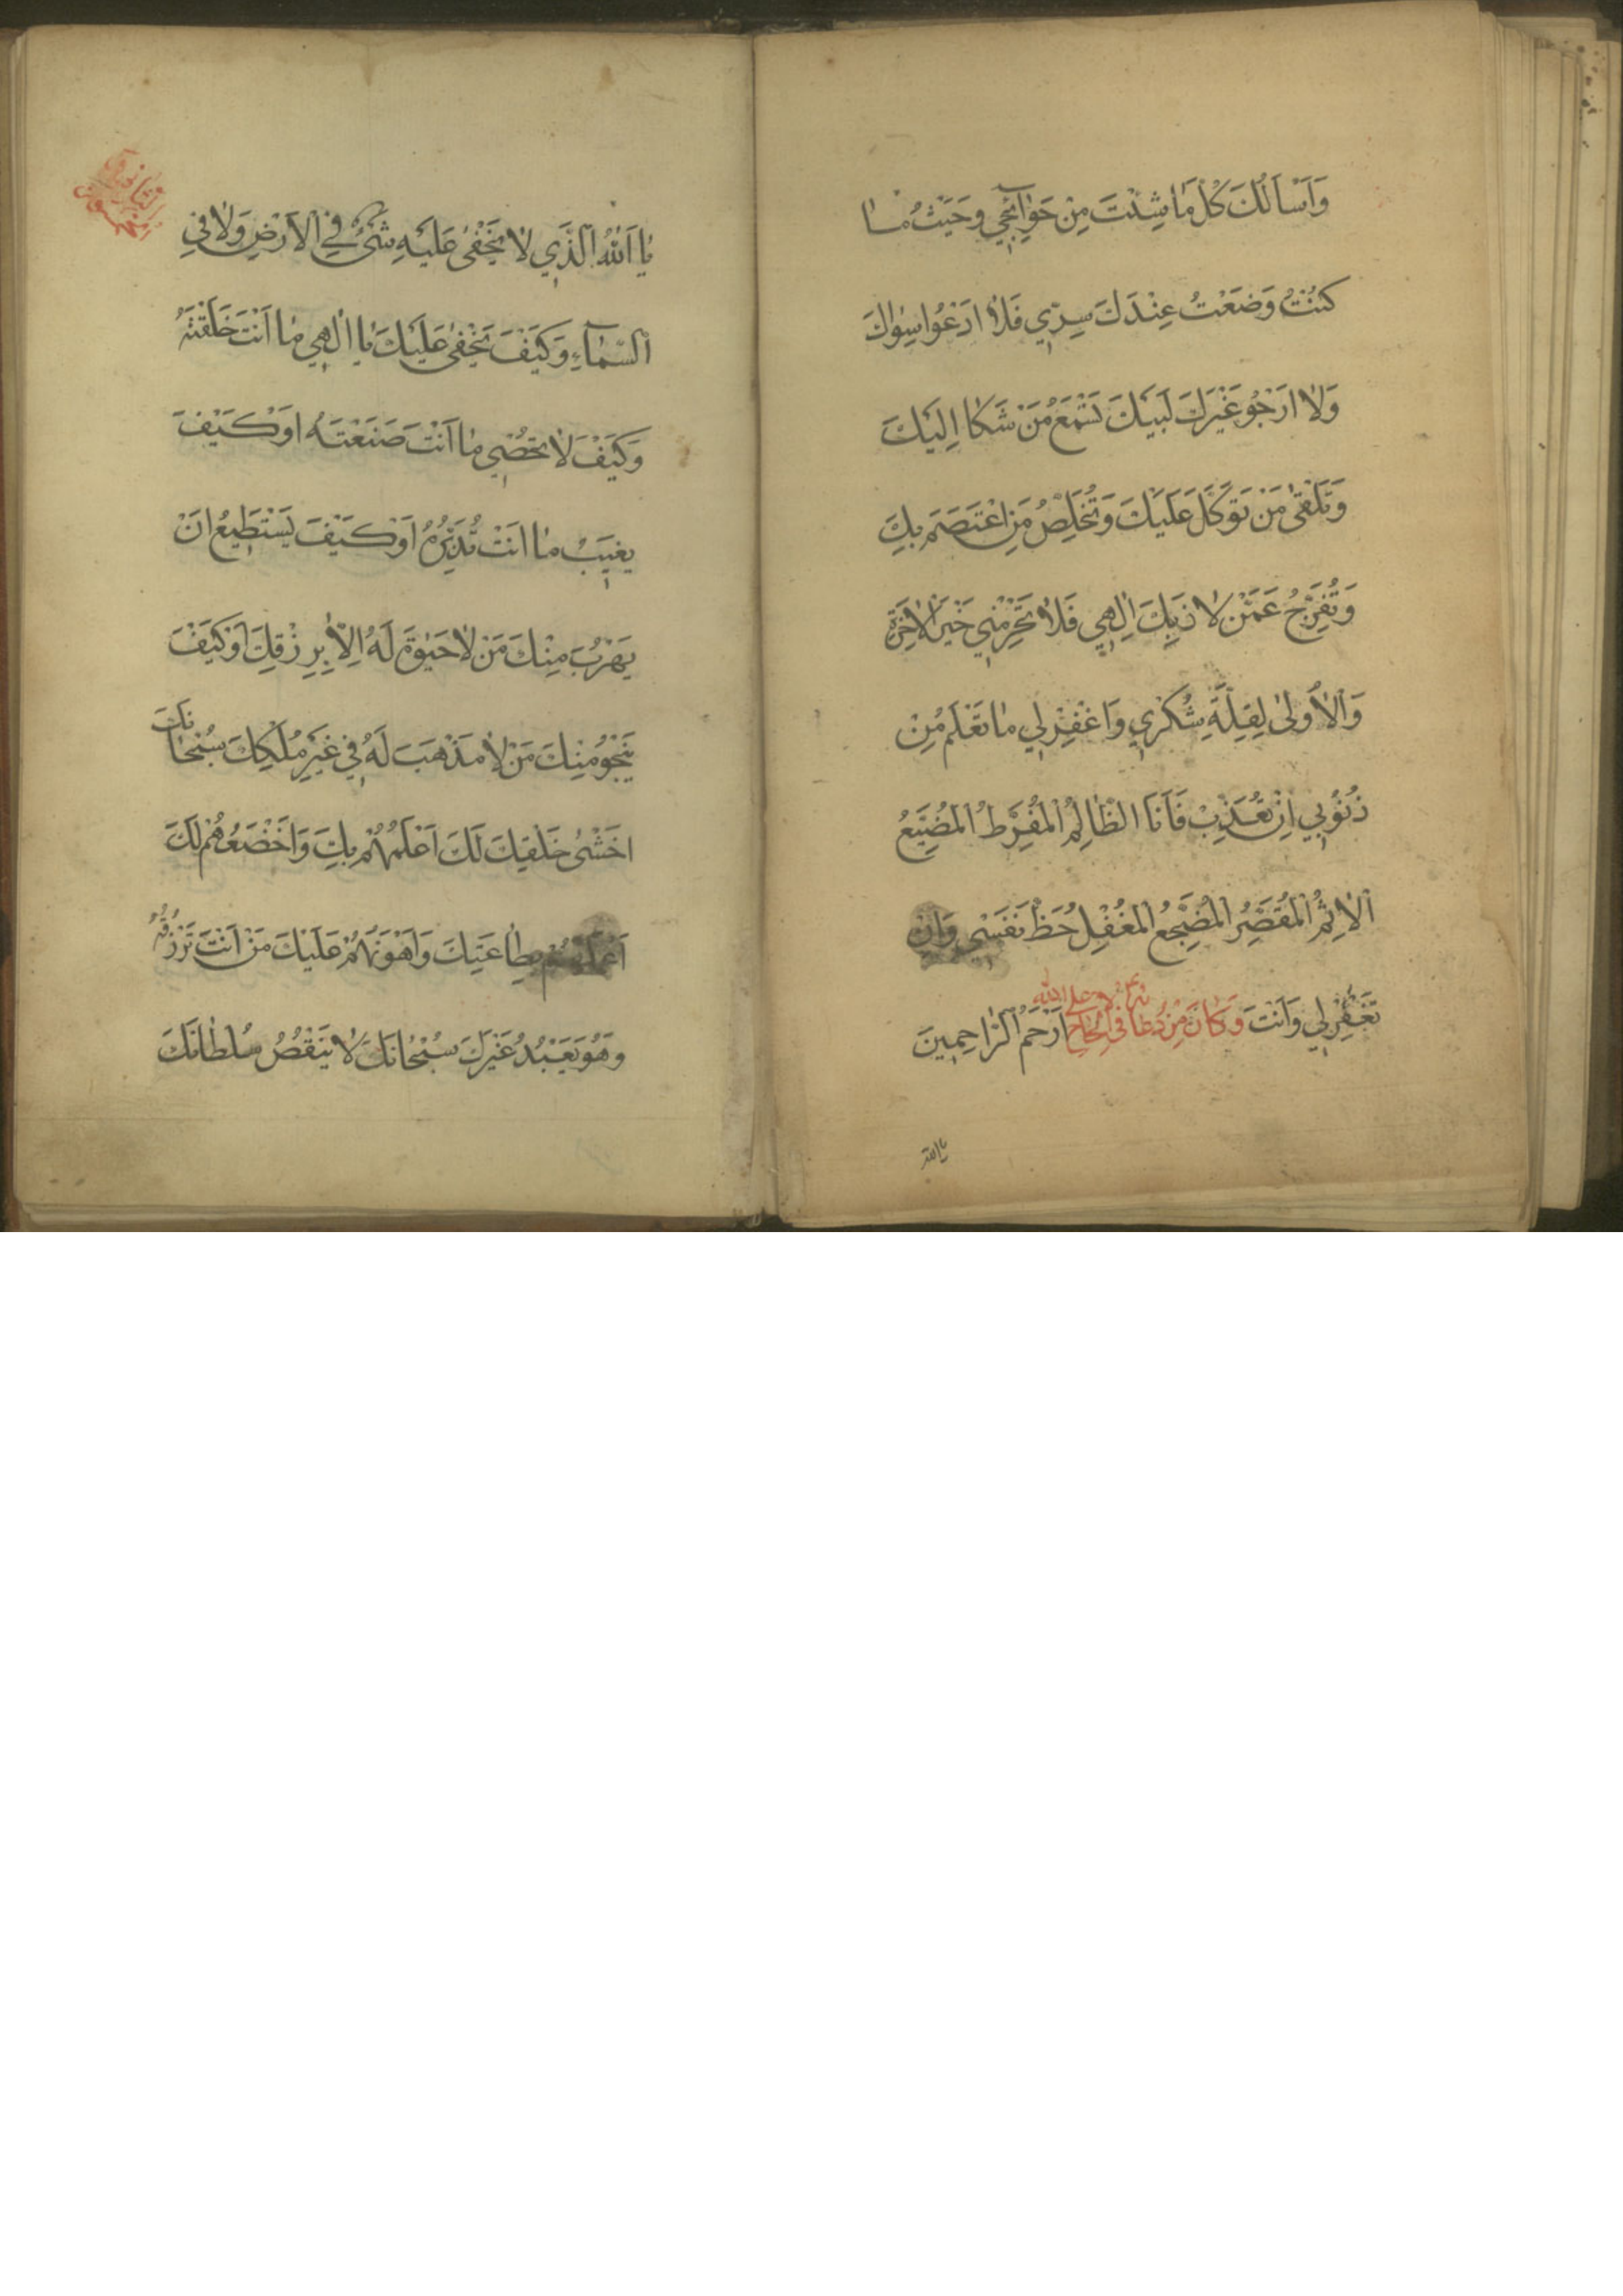 وَاَسْاَلُكَ كُلَّ مٰا شِئْتَ مِنْ حَوٰائِجِي وَحَيْثُ مٰا
كُنْتُ وَضَعْتُ عِنْدَكَ سِرّي فَلاٰ اَدْعُوا سِوٰاكَ
وَلاٰ اَرْجُو غَيْرَكَ لَبَيْكَ تَسْمَعُ مَنْ شَكٰا اِلَيْكَ
وَتَلْقٰى مَنْ تَوَكَّلَ عَلَيْكَ وَتُخَلِّصُ مَنِ اعْتَصَمَ بِكَ
وَتُفَرِّجُ عَمَّنْ لاٰذَ بِكَ اِلٰهِي فَلاٰ تَحْرِمْنِي خَيْرَ الْاٰخِرَةِ
وَالْاُولٰى لِقِلَّةِ شُكْرِي وَاغْفِرْ لِي مٰا تَعْلَمُ مِنْ
ذُنُوبِي اِنْ تُعَذِّبْ فَاَنَا الظّٰالِمُ الْمُفَرِّطُ الْمُضَيِّعُ
الْاٰثِمُ الْمُقَصِّرُ الْمُضَجِّعُ الْمُغْفِلُ حَظَّ نَفْسِي وَاِنْ
تَغْفِرْ لِي وَاَنْتَ وَكٰانَ مِنْ دُعٰائِهِ فِي الْاِلْحٰاحِ عَلَى اللهِ اَرْحَمُ الرّٰاحِمِينَ
يا الله
يٰا اَللهُ الَّذِي لاٰ يَخْفٰى عَلَيْهِ شَيْءٌ فِي الْاَرْضِ وَلاٰ فِي
السَّمٰآءِ وَكَيْفَ يَخْفٰى عَلَيْكَ يٰا اِلٰهِي مٰا اَنْتَ خَلَقْتَهُ
وَكَيْفَ لاٰ تُحْصِي مٰا اَنْتَ صَنَعْتَهُ اَوْ كَيْفَ
يَغِيبُ مٰا اَنْتَ تُدَبِّرُهُ اَوْ كَيْفَ يَسْتَطِيعُ اَنْ
يَهْرُبَ مِنْكَ مَنْ لاٰ حَيٰوةَ لَهُ اِلاّٰ بِرِزْقِكَ اَوْ كَيْفَ
يَنْجُو مِنْكَ مَنْ لاٰ مَذْهَبَ لَهُ فِي غَيْرِ مُلْكِكَ سُبْحٰانَكَ
اَخْشٰى خَلْقِكَ لَكَ اَعْلَمُهُمْ بِكَ وَاَخْضَعُهُمْ لَكَ
اَعْمَلُهُمْ بِطٰاعَتِكَ وَاَهْوَنُهُمْ عَلَيْكَ مَنْ اَنْتَ تَرْزُقُهُ
وَهُوَ يَعْبُدُ غَيْرَكَ سُبْحٰانَكَ لاٰ يَنْقُصُ سُلْطٰانَكَ